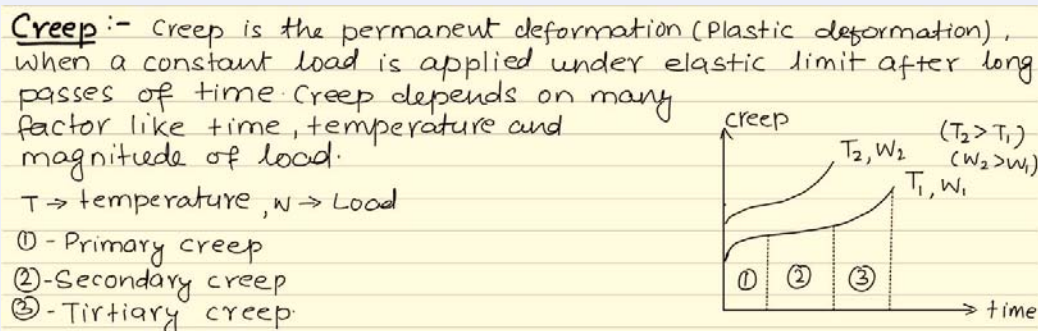 Creep :- Creep is the permanent deformation (Plastic deformation),
when a constant load is applied under elastic limit after long
passes of time. Creep depends on many
factor like time, temperature and
magnitude of load.
T → temperature, W → Load
① - Primary creep
② - Secondary creep
③ - Tirtiary creep.
creep
T₂, W₂
(T₂ > T₁)
(W₂ > W₁)
T₁, W₁
① ② ③
time